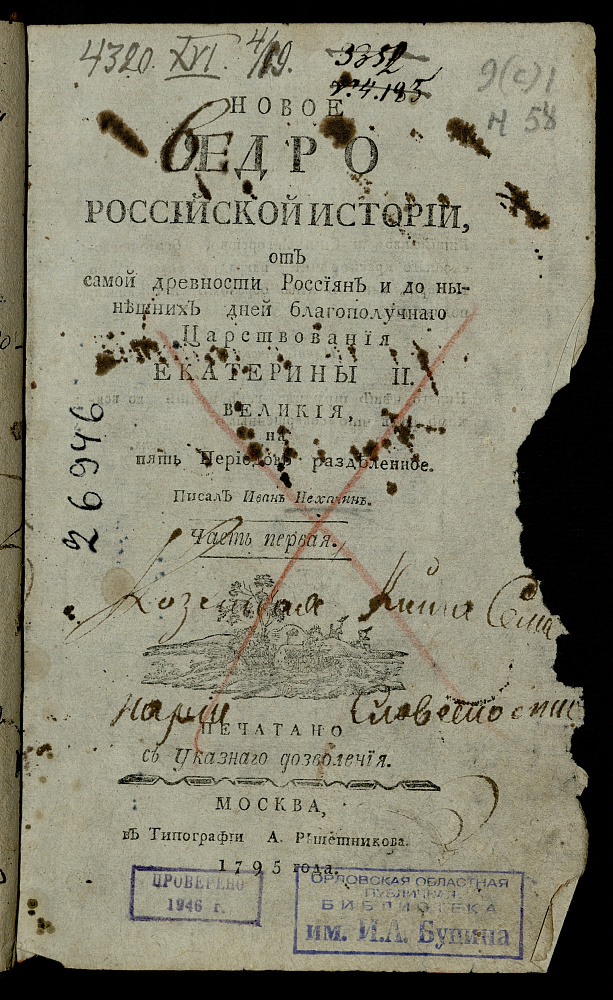 4320. XVI. 4/19.
3352
9(с)1
Н 58
НОВОЕ
ЯДРО
РОССІЙСКОЙ ИСТОРІИ,
отъ
самой древности Россіянъ и до ны-
нѣшнихъ дней благополучнаго
Царствованія
ЕКАТЕРИНЫ II.
ВЕЛИКІЯ,
на
пять Періодовъ раздѣленное.
Писалъ Иванъ Нехачинъ.
Часть первая.
26946
ПЕЧАТАНО
съ Указнаго дозволенія.
МОСКВА,
въ Типографіи А. Рѣшетникова.
1795 года.
ПРОВЕРЕНО
1946 г.
ОРЛОВСКАЯ ОБЛАСТНАЯ
ПУБЛИЧНАЯ
БИБЛИОТЕКА
им. И.А. Бунина